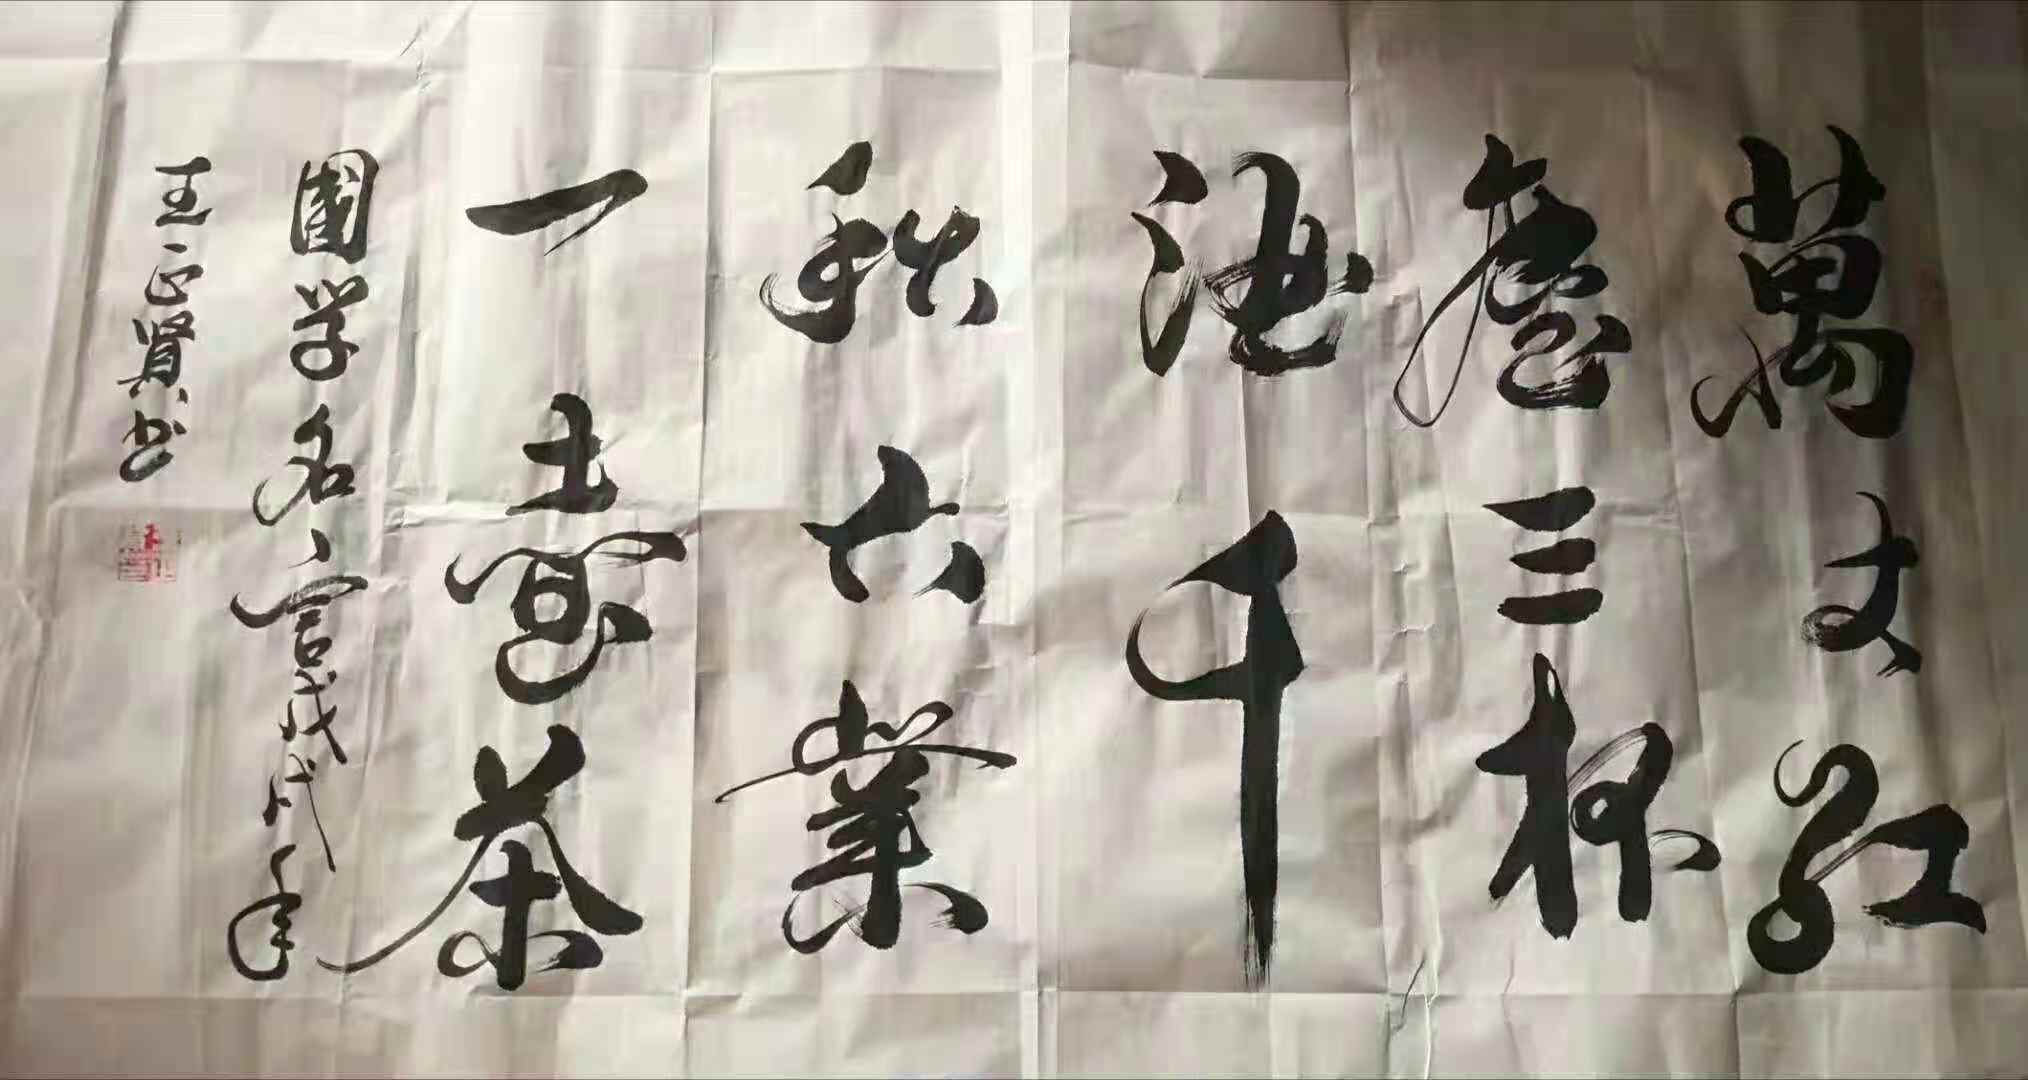 萬丈紅
塵三杯
酒千
秋大業
一壺茶
國学名言戊戌年
王正賢书